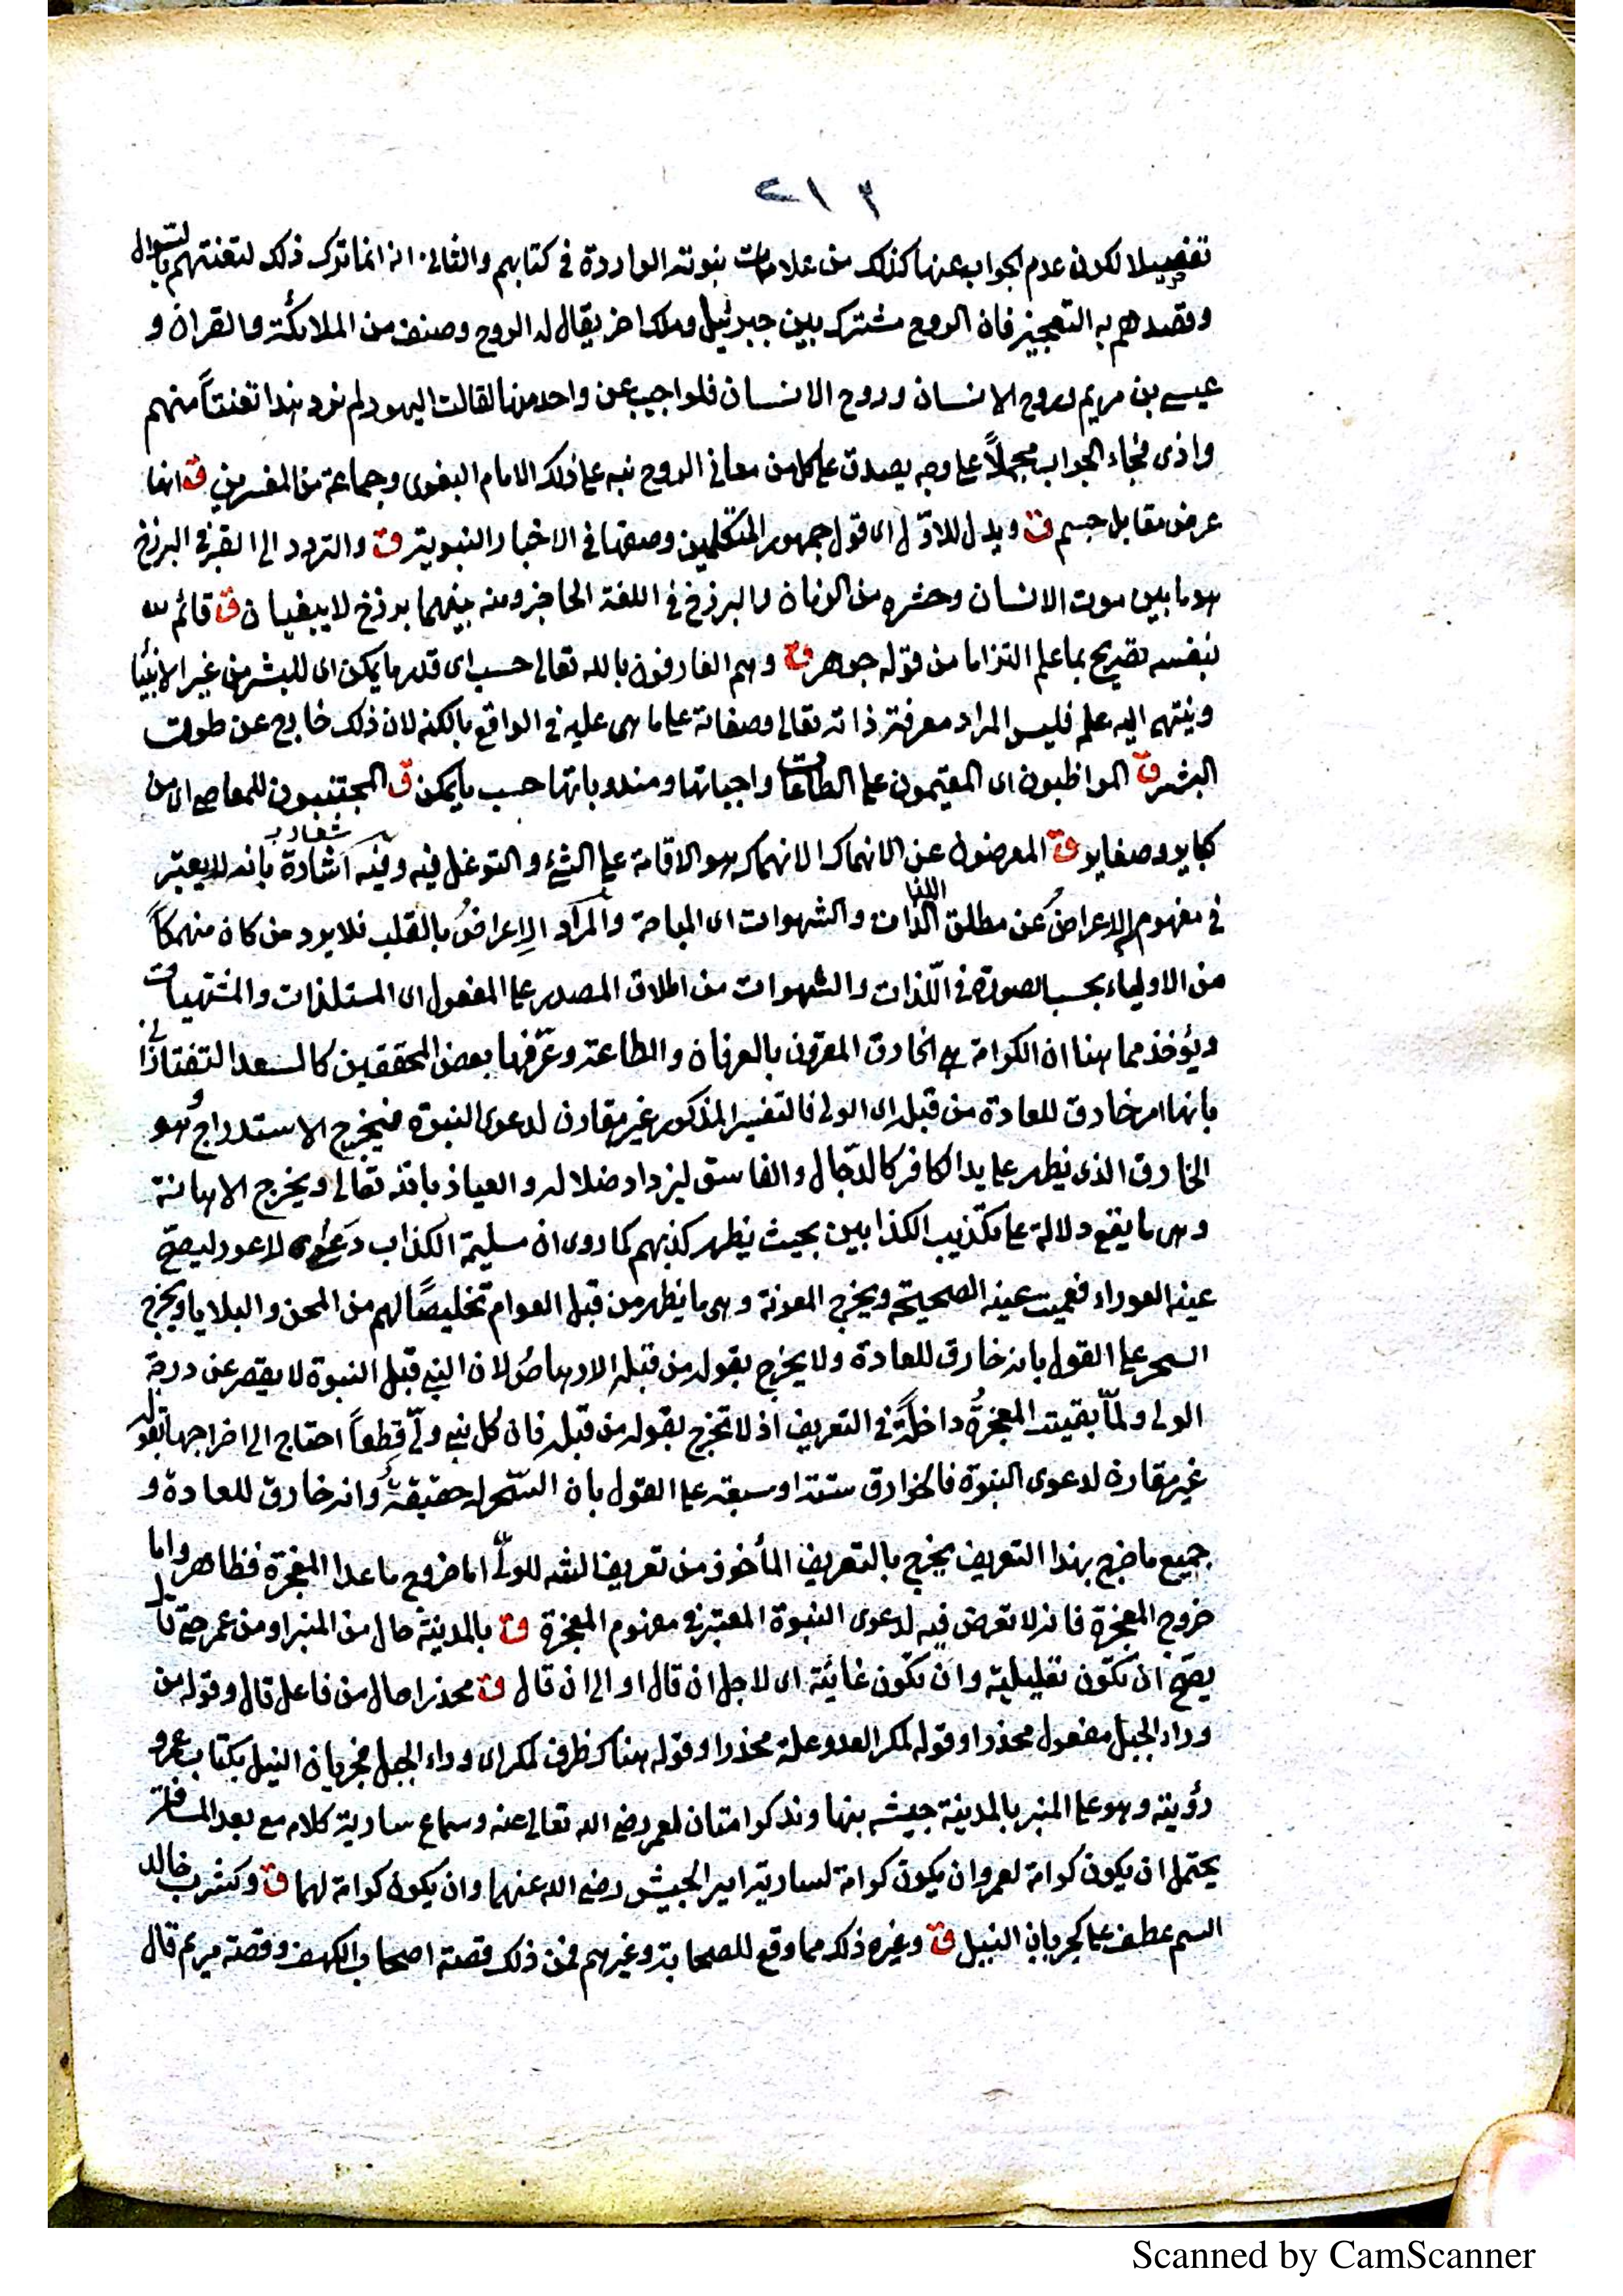 ٢١٢
تفصيلا لكون عدم الجواب عنها كذلك من علامات نبوته الواردة في كتابهم والثاني انه انما ترك ذلك لتعنتهم بالسوال
وقصدهم به التعجيز فان الروح مشترك بين جبرئيل وملك اخر يقال له الروح وصنف من الملائكة والقران و
عيسى بن مريم وروح الانسان فلو اجيب عن واحد منها لقالت اليهود لم نرد هذا تعنتاً منهم
واذى فجاء الجواب مجملاً على وجه يصدق على كل من معاني الروح نبه على ذلك الامام البغوى وجماعة من المفسرين ق انها
عرض مقابل جسم ق ويدل للاوّل اى قول جمهور المتكلمين وصفها في الاخبار النبوية ق والتردد الى القبر في البرزخ
هو ما بين موت الانسان وحشره من الزمان والبرزخ في اللغة الحاجز ومنه بينهما برزخ لا يبغيان ق قائم
بنفسه تصريح بما علم التزاما من قوله جوهر ق وهم العارفون بالله تعالى حسب اى قدر ما يمكن اى للبشر من غير الانبيا
وينتهى اليه علمه فليس المراد معرفة ذاته تعالى وصفاته على ما هى عليه في الواقع بالكنه لان ذلك خارج عن طوق
البشر ق المواظبون اى المقيمون على الطاعات واجباتها ومندوباتها حسب ما يمكن ق المجتنبون للمعاصى اى من
كباير وصغاير ق المعرضون عن الانهماك الانهماك هو الاقامة على الشئ والتوغل فيه وفيه اشارة بانه لا يعتبر
في مفهوم الاعراض عن مطلق اللذات والشهوات اى المباحة والمراد الاعراض بالقلب فلا يرد من كان منهمكاً
من الاولياء بحسب الصورة في اللّذات والشهوات من اطلاق المصدر على المفعول اى المستلذات والمشتهيات
ويؤخذ مما هنا ان الكرامة هى الخارق المقرون بالعرفان والطاعة وعرّفها بعض المحققين كالسعد التفتازانى
بانها امر خارق للعادة من قبله اى الولى فالتفسير المذكور غير مقارن لدعوى النبوة فيخرج الاستدراج وهو
الخارق الذى يظهر على يد الكافر كالدجّال والفاسق ليزداد ضلاله والعياذ بالله تعالى ويخرج الاهانة
وهى ما يقع دلالة على تكذيب الكذابين بحيث يظهر كذبهم كما روى ان مسليمة الكذاب دعى لاعور ليصح
عينه العوراء فعميت عينه الصحيحة ويخرج المعونة وهى ما يظهر من قبل العوام تخليصًا لهم من المحن والبلايا ويخرج
السحر على القول بانه خارق للعادة ولا يخرج بقوله من قبله الارهاص لان النبى قبل النبوة لا يقصر عن درجة
الولى ولمّا بقيت المعجزةُ داخلةً في التعريف اذ لا تخرج بقوله من قبله فان كل نبى ولىّ قطعاً احتاج الى اخراجها بقوله
غير مقارن لدعوى النبوة فالخوارق ستة او سبعة على القول بان السّحر له حقيقةٌ وانه خارق للعادة و
جميع ما خرج بهذا التعريف يخرج بالتعريف المأخوذ من تعريف الشه للولىّ اما خروج ما عدا المعجزة فظاهر واما
خروج المعجزة فانه لا تعرض فيه لدعوى النبوة المعتبر في مفهوم المعجزة ق بالمدينة حال من المنبر او من عمر حتى قال
يصحّ ان تكون تعليلية وان تكون غائية اى لاجل ان قال او الى ان قال ق محذرا حال من فاعل قال وقوله من
وراء الجبل مفعول محذرا وقوله لمكر العدو علة محذرا وقوله هناك ظرف لمكر اى وراء الجبل فجريان النيل بكتاب عمر و
رؤيته وهو على المنبر بالمدينة جيشه بنها وند كرامتان لعمر رضى الله تعالى عنه وسماع سارية كلامه مع بعد المسافة
يحتمل ان يكون كرامة لعمر وان يكون كرامة لسارية امير الجيش رضى الله عنهما وان يكون كرامة لهما ق وكشرب خالد
السم عطف على كجريان النيل ق وغيره ذلك مما وقع للصحابة وغيرهم فمن ذلك قصة اصحاب الكهف وقصة مريم قال
Scanned by CamScanner